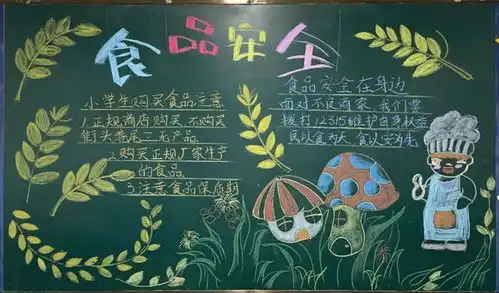 食品安全
小学生购买食品注意
1.正规商店购买,不购买
街头巷尾三无产品
2.购买正规厂家生产
的食品
3.注意食品保质期
食品安全在身边
面对不良商家,我们要
拨打12315维护自身权益
民以食为天,食以安为先